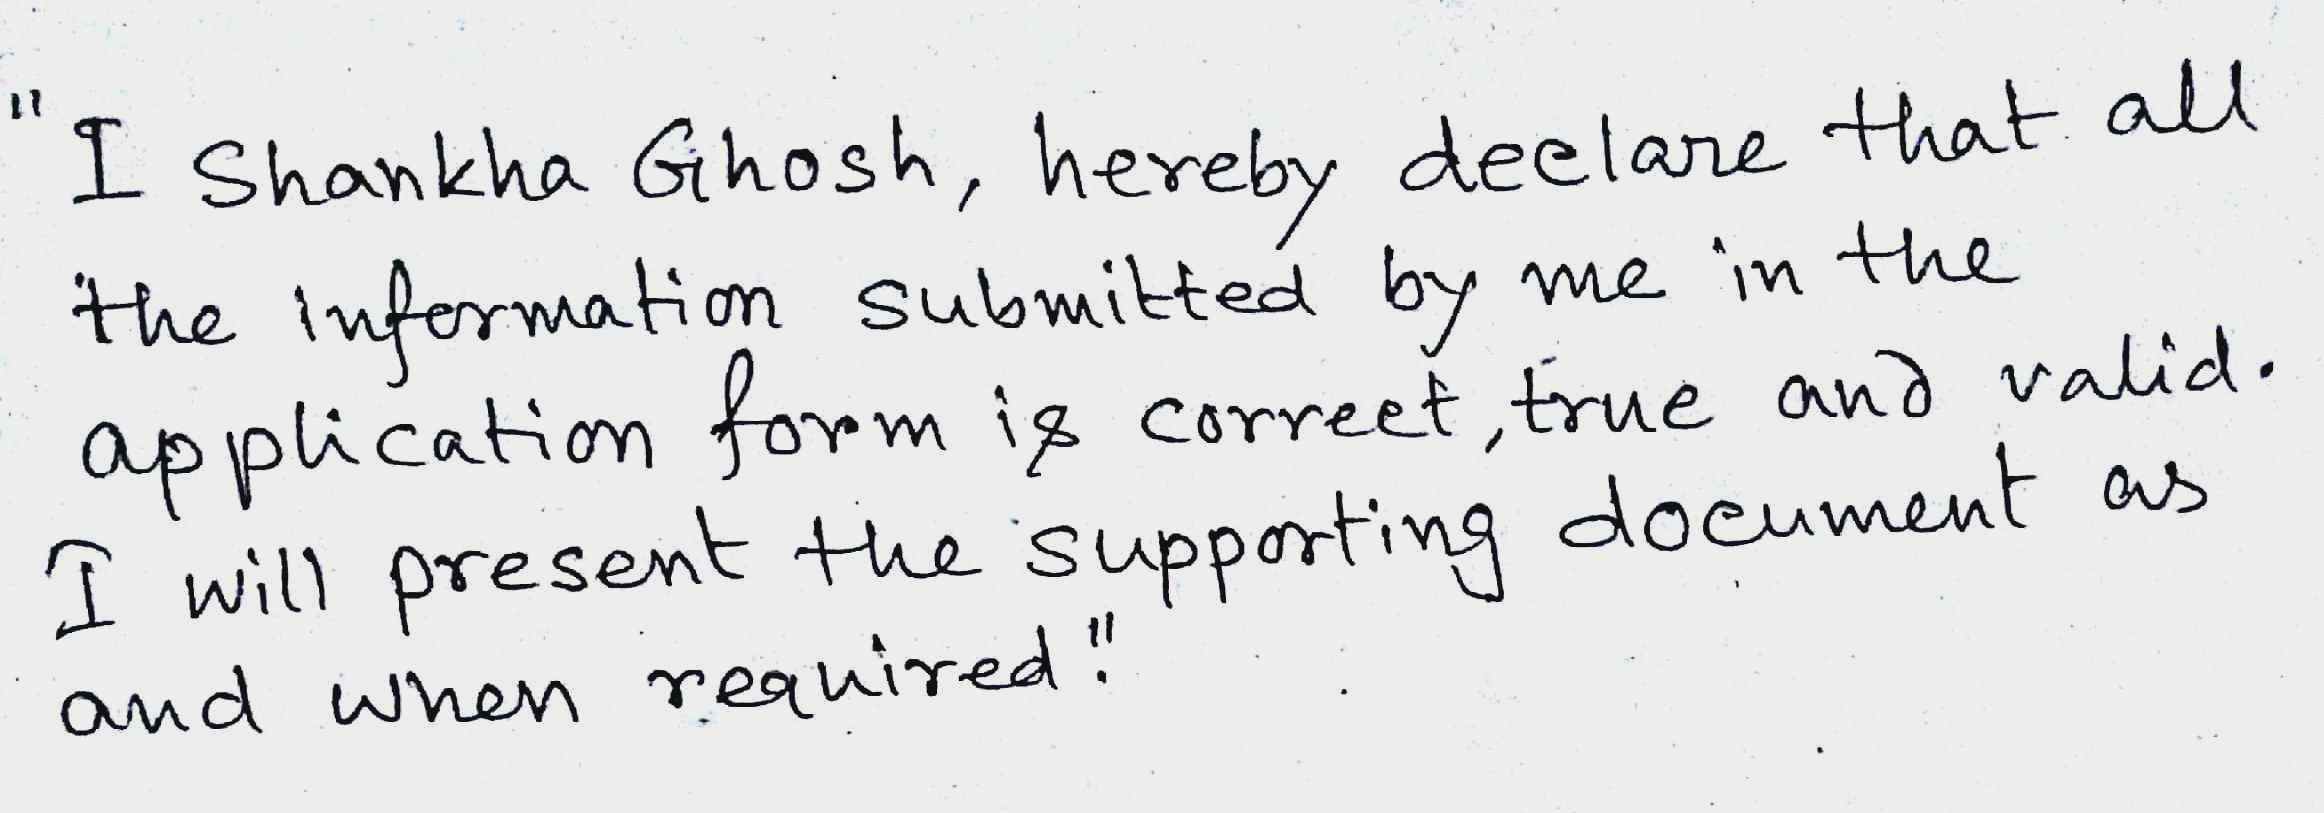 "I Shankha Ghosh, hereby declare that all
the information submitted by me in the
application form is correct, true and valid.
I will present the supporting document as
and when required."